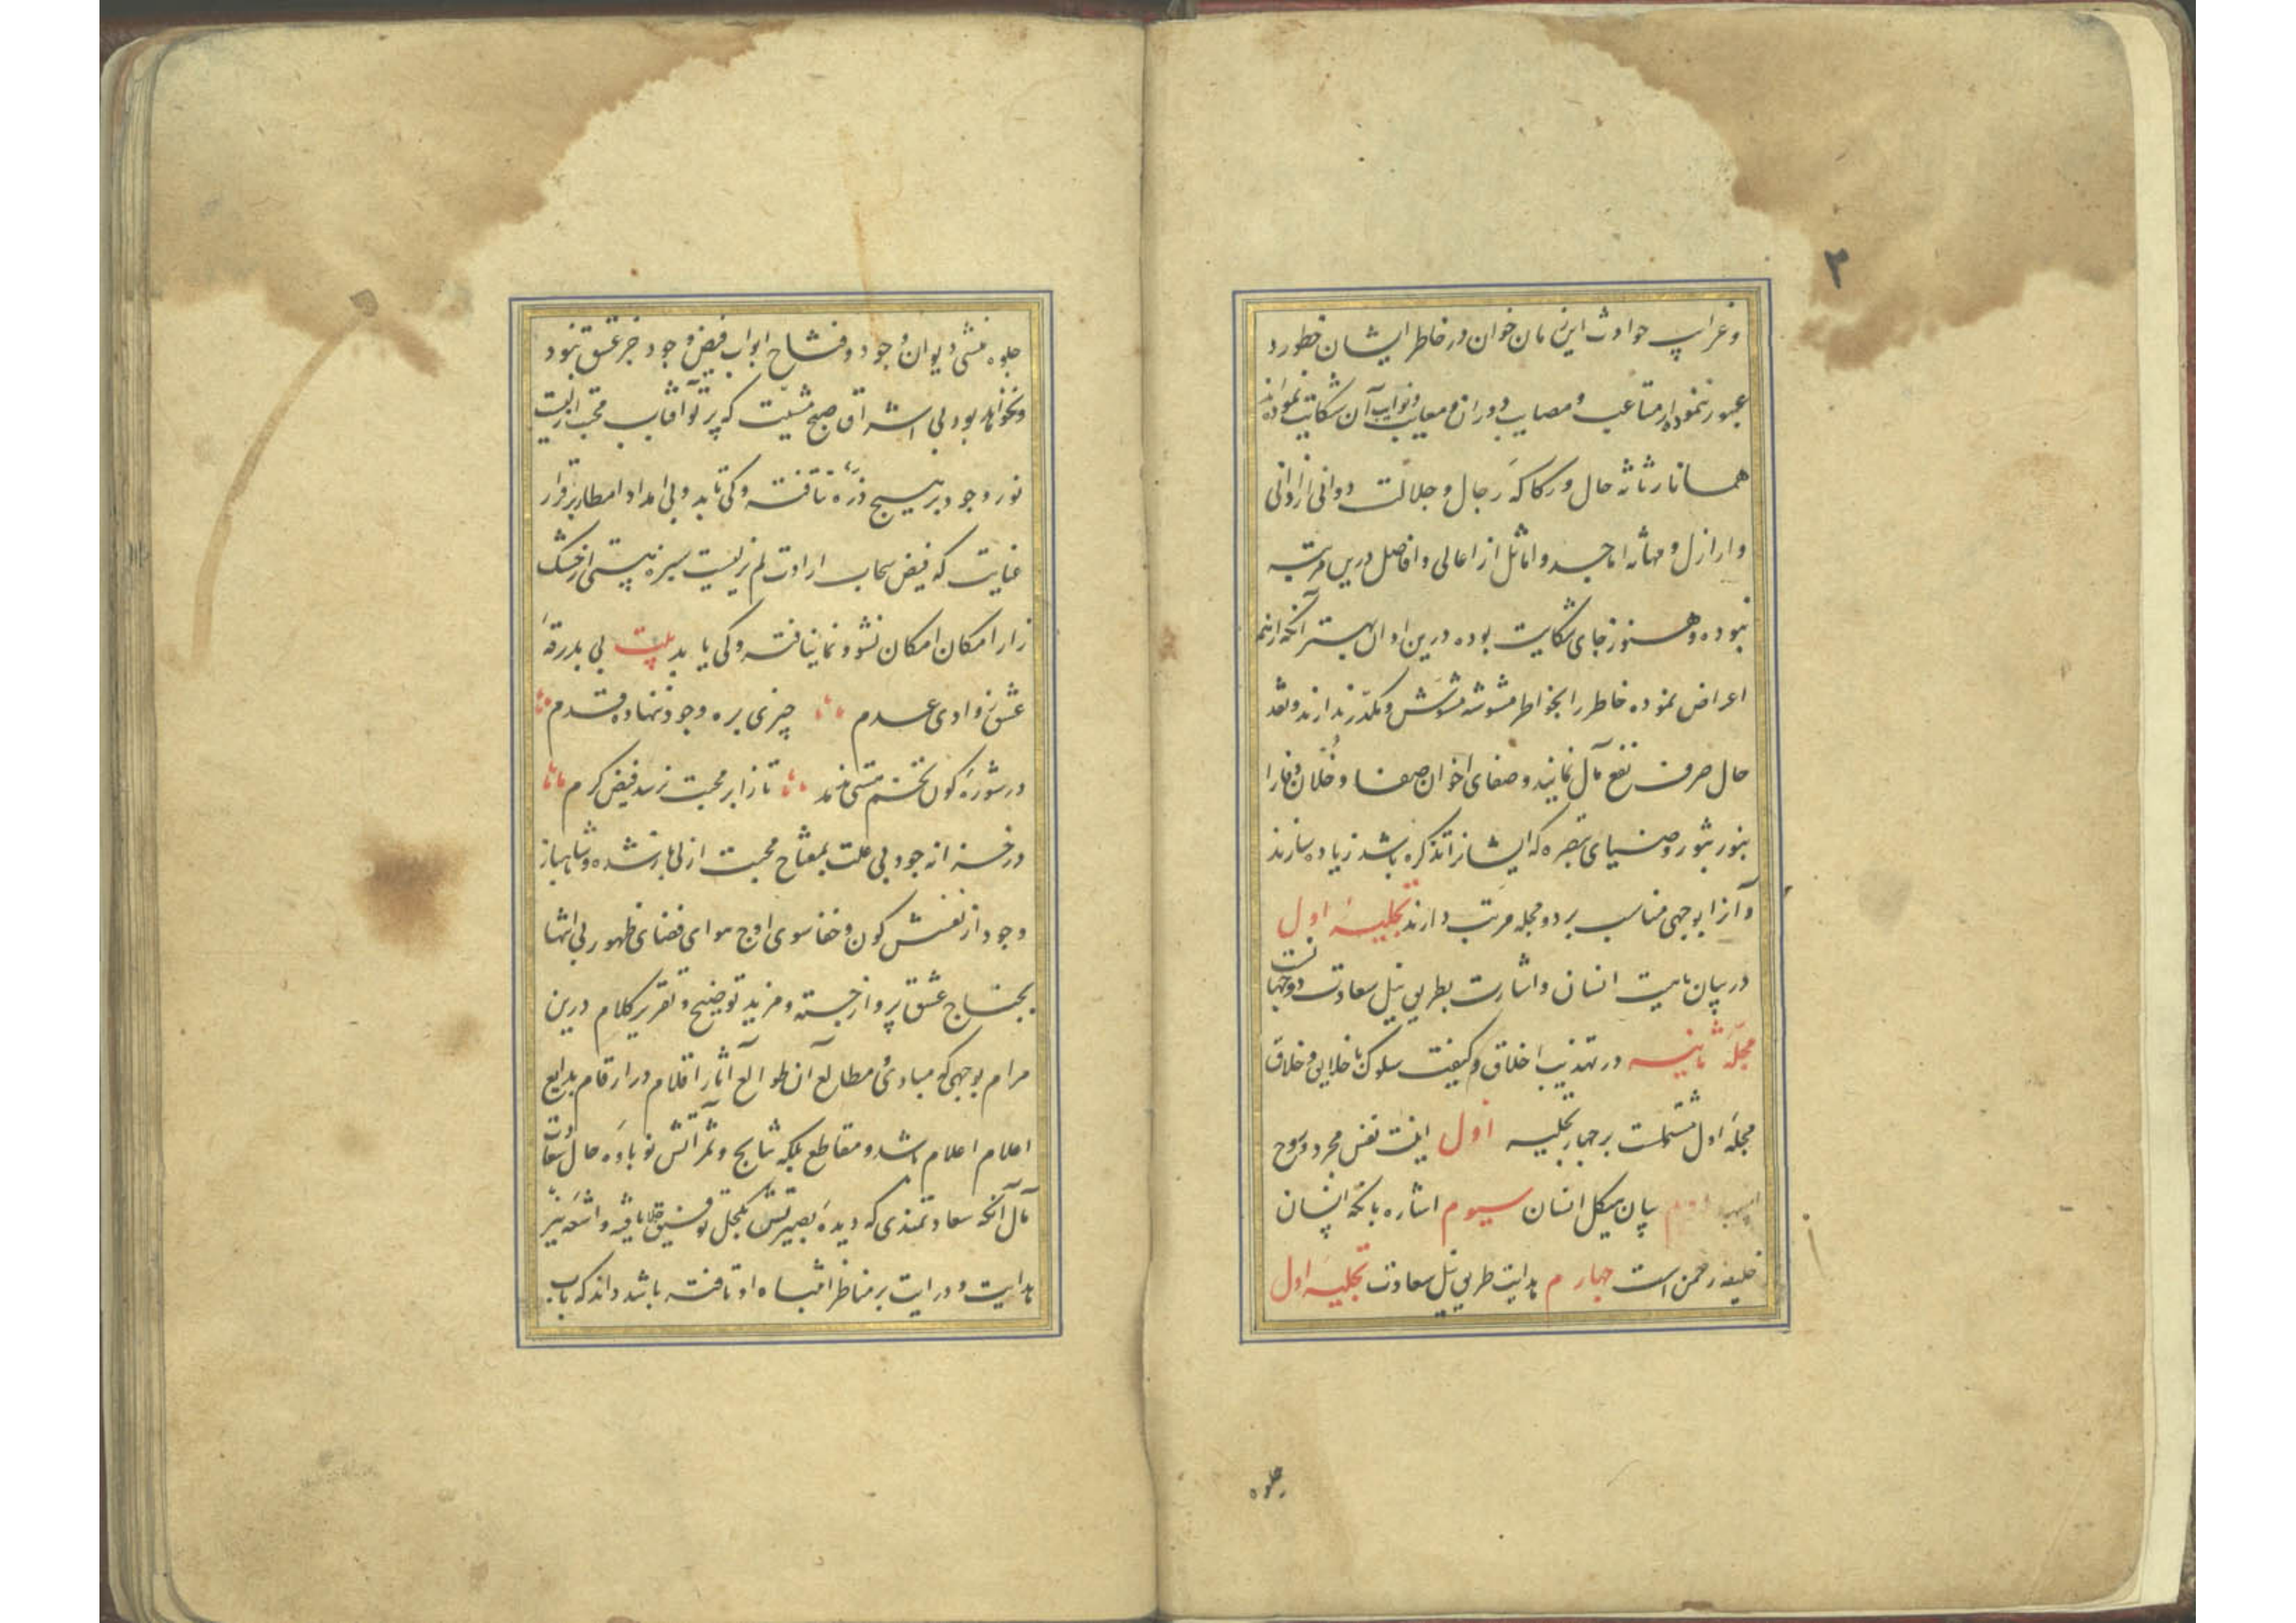 ۳
و غرایب حوادث این زمان خوان در خاطر ایشان خطور و
عبور ننموده از متاعب و مصایب دوران و معایب و نوایب آن شکایت نموده‌اند
همانا رثاثه حال و رکاکه رجال و جلالت دوانی از ادانی
و اراذل و مهانه اماجد و اماثل از اعالی و افاضل درین مرتبه
نبوده و هنوز جای شکایت بوده درین اوان بهتر آنکه ازینهم
اعراض نموده خاطر را بخواطر مشوشه مشوش و مکدر ندارند و نقد
حال صرف نفع مآل نمایند و صفای اخوان صفا و خلان وفا را
بنور شور و ضیای تبصره که ایشانرا تذکره باشد زیاده سازند
و آنرا بوجهی مناسب بر دو مجله مرتب دارند تجلیه اول
در بیان ماهیت انسان و اشارت بطریق نیل سعادت دوجهانست
مجله ثانیه در تهذیب اخلاق و کیفیت سلوک با خلایق و خلاق
مجله اول مشتملست بر چهار تجلیه اول اینت نفس مجرد و روح
بیان هیکل انسان سیوم اشاره بانکه انسان
خلیفه رحمن است چهارم هدایت طریق نیل سعادت تجلیه اول
جلوه
جلوه منشی دیوان وجود و فتاح ابواب فیض و جود جز عشق نبود
و نخواهد بود بی اشراق صبح مشیت که پرتو آفتاب محبت ازلیت
نور وجود بر هیچ ذره نتافته و کی تابد و بی امداد امطار
عنایت که فیض سحاب ارادت لم یزلیست سبزه هستی از خشک
زار امکان امکان نشو و نما نیافته و کی یابد بیت بی بدرقه
عشق ز وادی عدم چیزی بره وجود ننهاده قدم
در شوره کون تخم هستی ندمد تا ز ابر محبت نرسد فیض کرم
در خزانه جود بی علت بمفتاح محبت ازلی باز شده و شاهباز
وجود از قفس کون و خفا سوی اوج هوای فضای ظهور بی انتها
بجناح عشق پرواز جسته و مزید توضیح و تقریر کلام درین
مرام بوجهی که مبادی مطالع آن طوالع آثار اقلام در ارقام بدایع
اعلام اعلام باشد و مقاطع بلکه نتایج و ثمراتش نوباوه حال سعادت
مآل آنکه سعادتمندی که دیده بصیرتش بکحل توفیق جلا یافته و اشعه نیر
هدایت و درایت بر مناظر انتباه او تافته باشد داند که باب